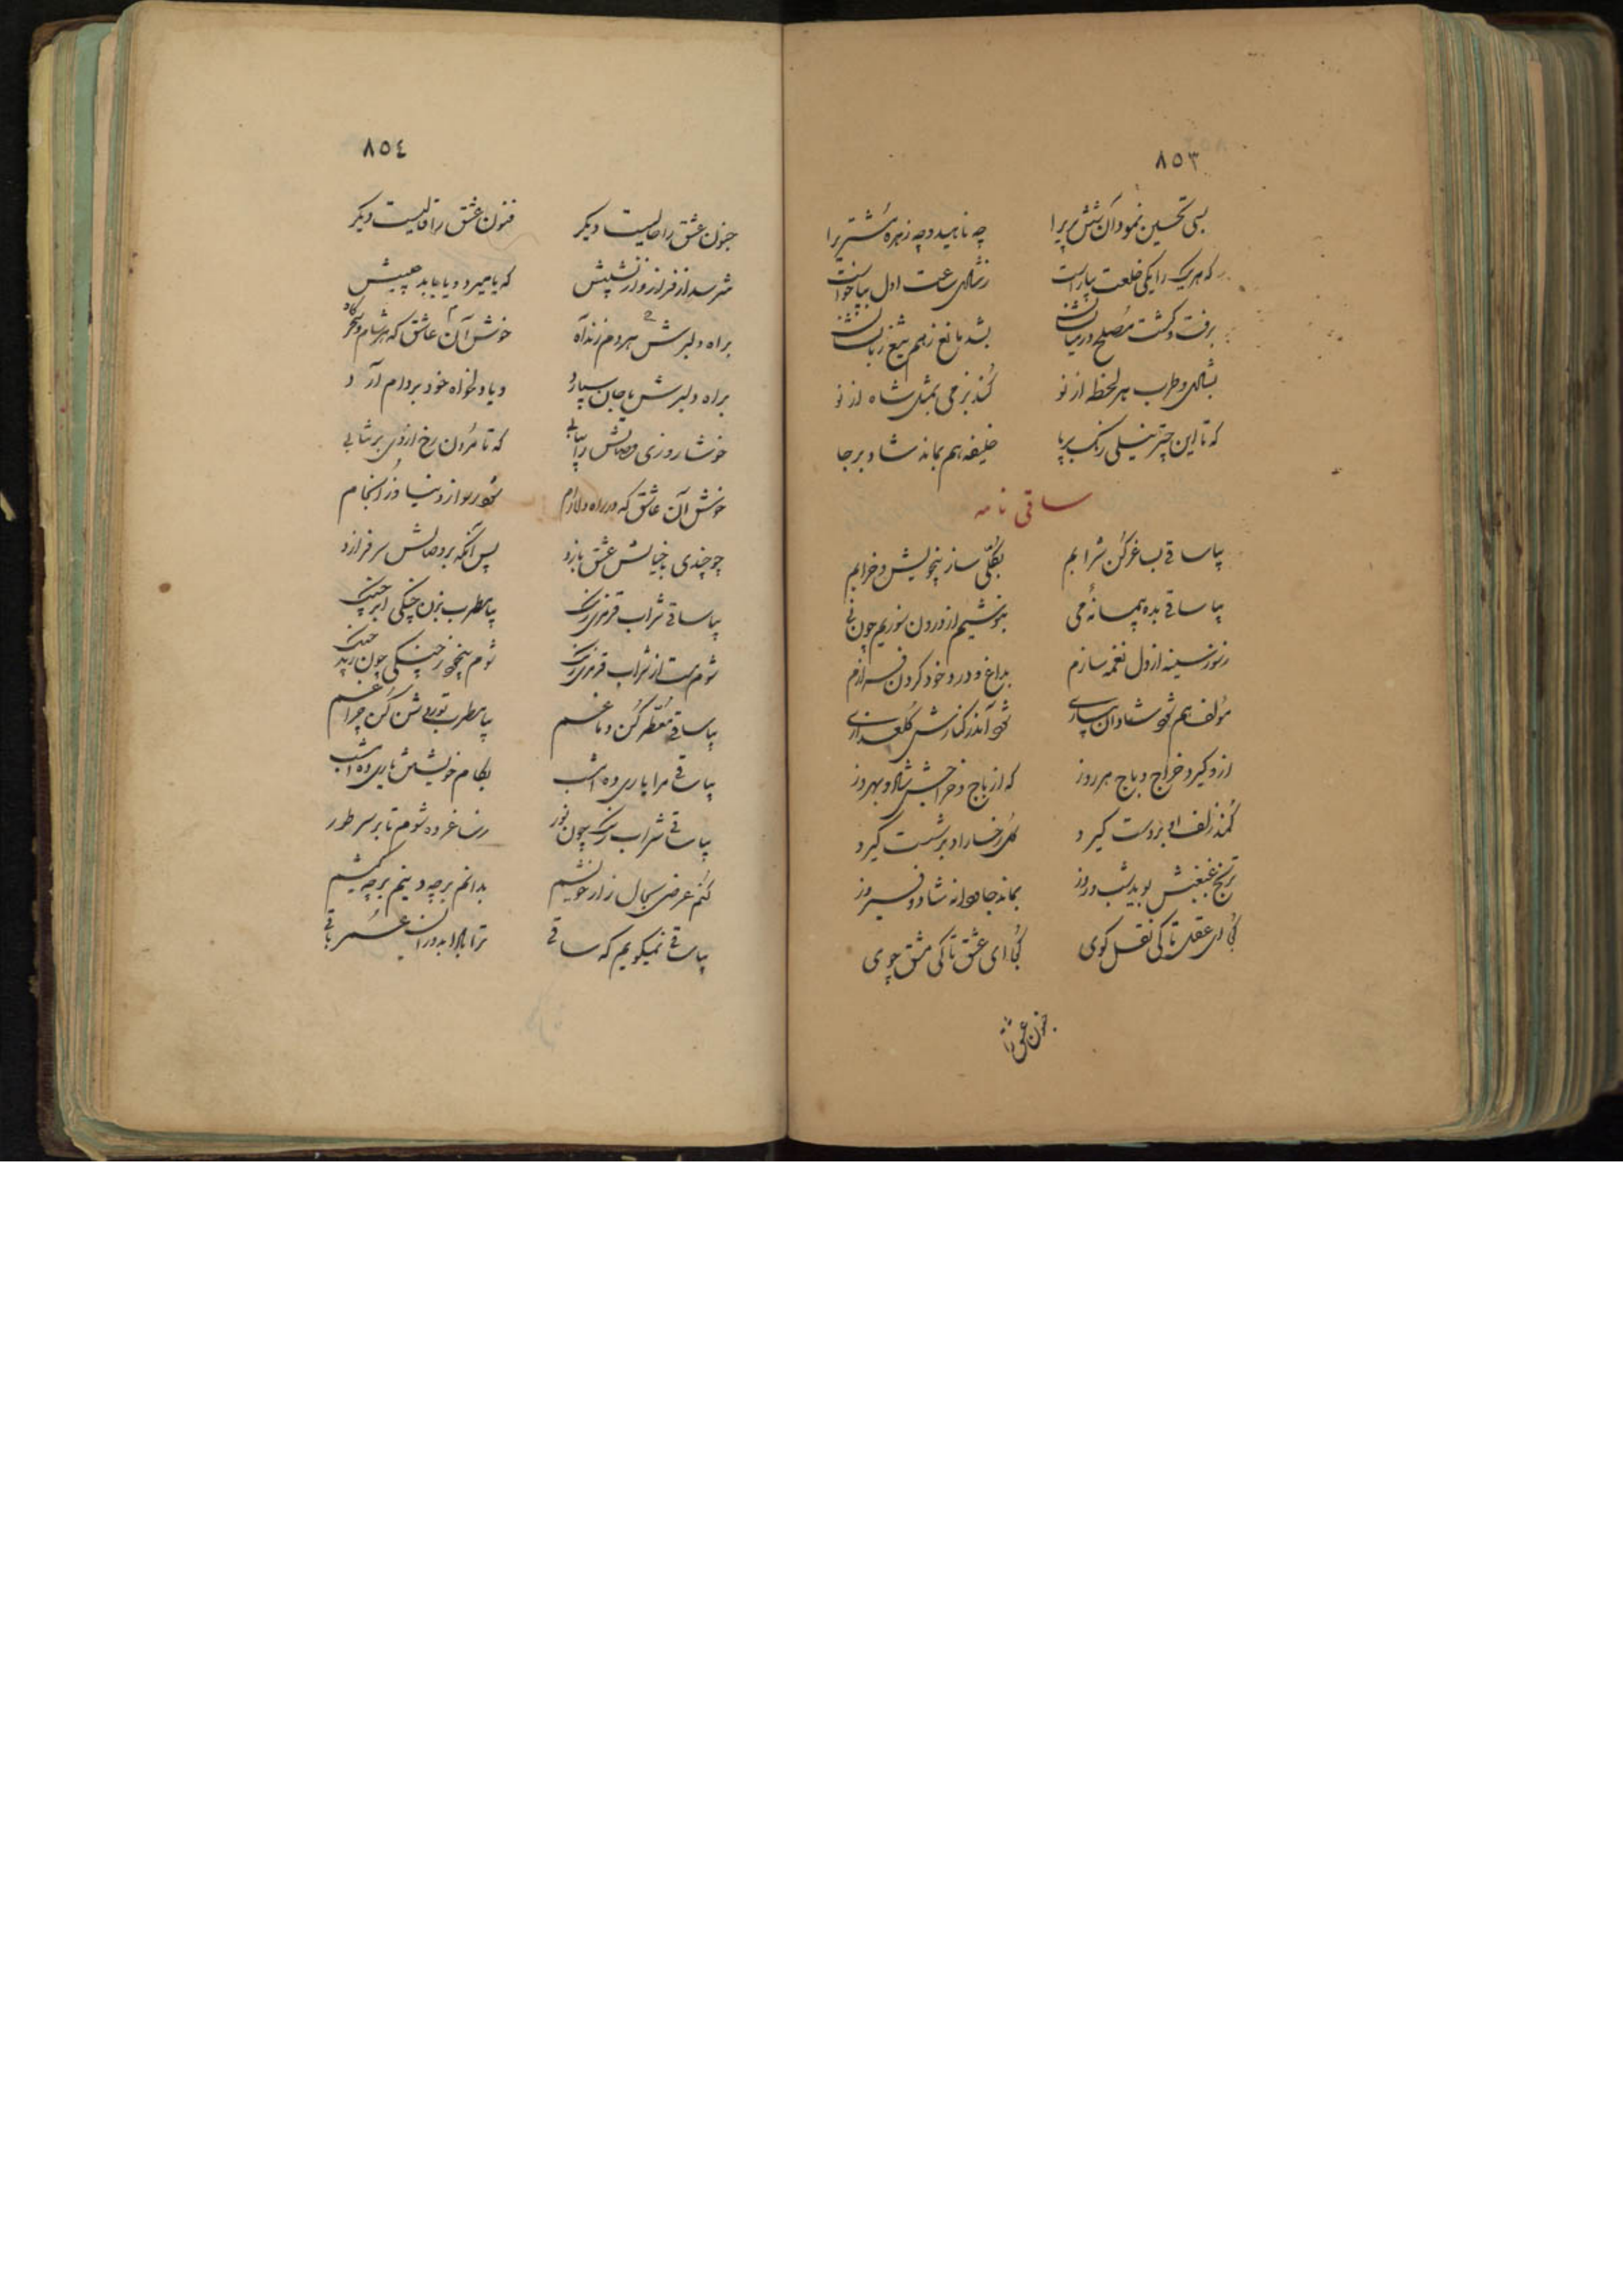 ٨٥٣
بسی تحسین نمود آن شش پریرا
چه ناهید و چه زهره مشتریرا
که هریک را یکی خلعت بیاراست
ز شادی ساعت اول بپا خواست
برفت و گشت مصلح در میانشان
بشد مانع زهم تیغ زبانشان
بشادی و طرب هر لحظه از نو
کند بزمی بمثل شاه از نو
که تا این چتر نیلی رنگ برپا
خلیفه هم بماند شاد برجا
ساقی نامه
بیا ساقی بساغر کن شرابم
بکلّی ساز بیخویش و خرابم
بیا ساقی بده پیمانهٔ می
بنوشیم از درون سوزیم چون نی
ز سوز سینه از دل نغمه سازم
بداغ و درد خود گردن فرازم
مؤلف هم شود شادان بیاری
شود آندر کنارش گلعذاری
ازو گیرد خراج و باج هر روز
که از باج و خراجش شاد و بهروز
کمند زلف او بر دست گیرد
گل رخسار او بر شست گیرد
ترنج غبغبش بوید شب و روز
بماند جاودانه شاد و فیروز
کجا ای عقل تا کی نقل گوی
کجا ای عشق تا کی مشق جوی
جنون عشق را
٨٥٤
جنون عشق را حالیست دیگر
فنون عشق را قالیست دیگر
مترسد از فراز و از نشیبش
که یا میرد و یا یابد حبیبش
براه دلبرش هر دم زند آه
خوش آن عاشق که هر شام و سحرگاه
براه دلبرش تا جان سپارد
و یا دلخواه خود بر دام آرد
خوشا روزی وصالش را بیابی
که تا مردن رخ از وی بر نتابی
خوش آن عاشق که در راه دلارام
شود رسوا ز دنیا و ز انجام
چو چندی با خیالش عشق بازد
پس آنگه بر وصالش سر فرازد
بیا ساقی شراب قرمزی رنگ
بیا مطرب بزن چنگی ابر چنگ
شوم مست از شراب قرمزی رنگ
شوم بیخود ز چنگی چون زند چنگ
بیا ساقی معطر کن دماغم
بیا مطرب تو روشن کن چراغم
بیا ساقی مرا یاری ده امشب
بکام خویشتن یاری ده امشب
بیا ساقی شراب رنگ چون نور
رسا غرده شوم تا بر سر طور
کنم عرضی بحال زار خویشم
بدانم بر چه دینم بر چه کیشم
بیا ساقی نمیگویم که ساقی
ترا بادا بدوران عمر باقی